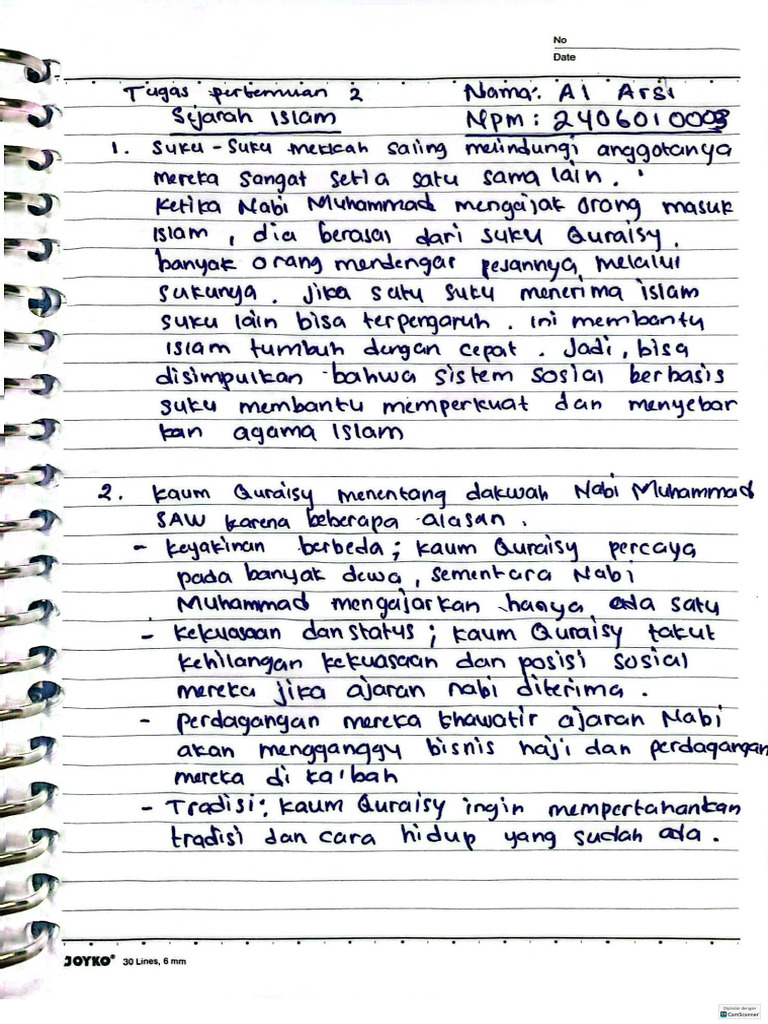 No
Date
Tugas pertemuan 2 Nama: Al Arsi
Sejarah Islam Npm: 2406010003
1. Suku-Suku mekkah saling melindungi anggotanya
mereka sangat setia satu sama lain.
Ketika Nabi Muhammad mengajak orang masuk
Islam, dia berasal dari suku Quraisy.
banyak orang mendengar pesannya melalui
sukunya. Jika satu suku menerima islam
suku lain bisa terpengaruh. ini membantu
Islam tumbuh dengan cepat. Jadi, bisa
disimpulkan bahwa sistem sosial berbasis
suku membantu memperkuat dan menyebar
kan agama Islam
2. kaum Quraisy menentang dakwah Nabi Muhammad
SAW karena beberapa alasan.
- keyakinan berbeda; kaum Quraisy percaya
pada banyak dewa, sementara Nabi
Muhammad mengajarkan hanya ada satu
- kekuasaan dan status; kaum Quraisy takut
kehilangan kekuasaan dan posisi sosial
mereka jika ajaran nabi diterima.
- perdagangan mereka khawatir ajaran Nabi
akan mengganggu bisnis haji dan perdagangan
mereka di ka'bah
- Tradisi; kaum Quraisy ingin mempertahankan
tradisi dan cara hidup yang sudah ada.
JOYKO 30 Lines, 6 mm
Dipindai dengan
CamScanner